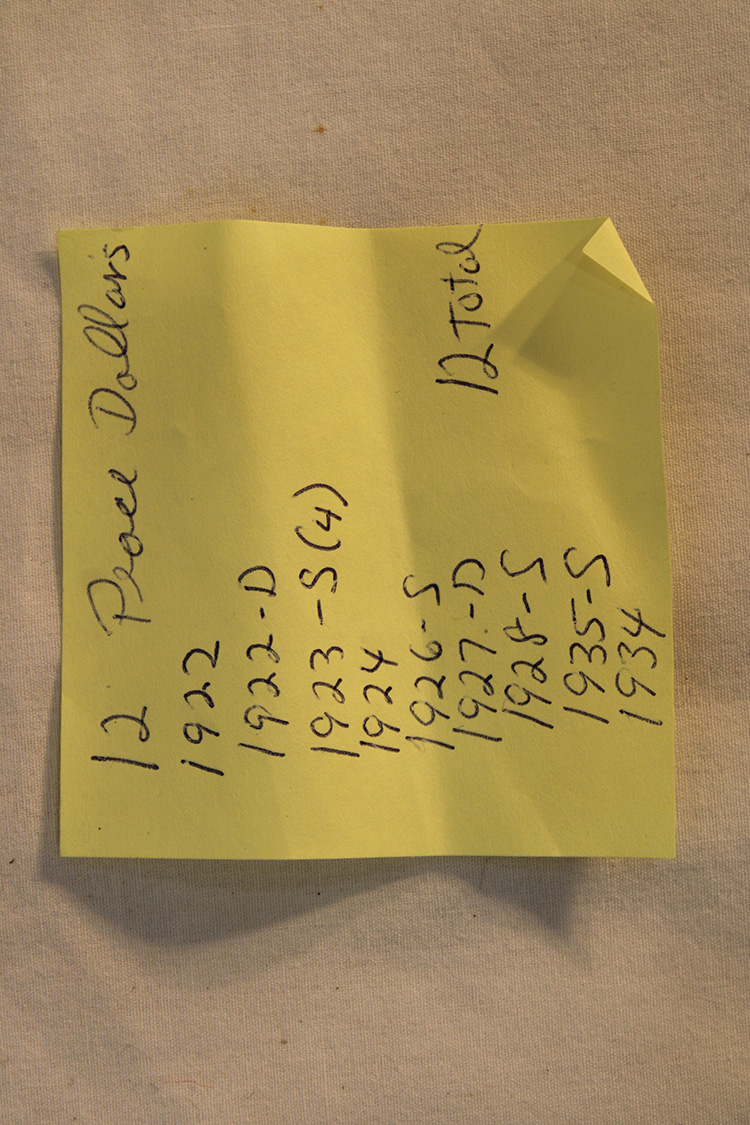 12 Peace Dollars
1922
1922-D
1923-S (4)
1924
1926-S
1927-D 12 Total
1928-S
1935-S
1934